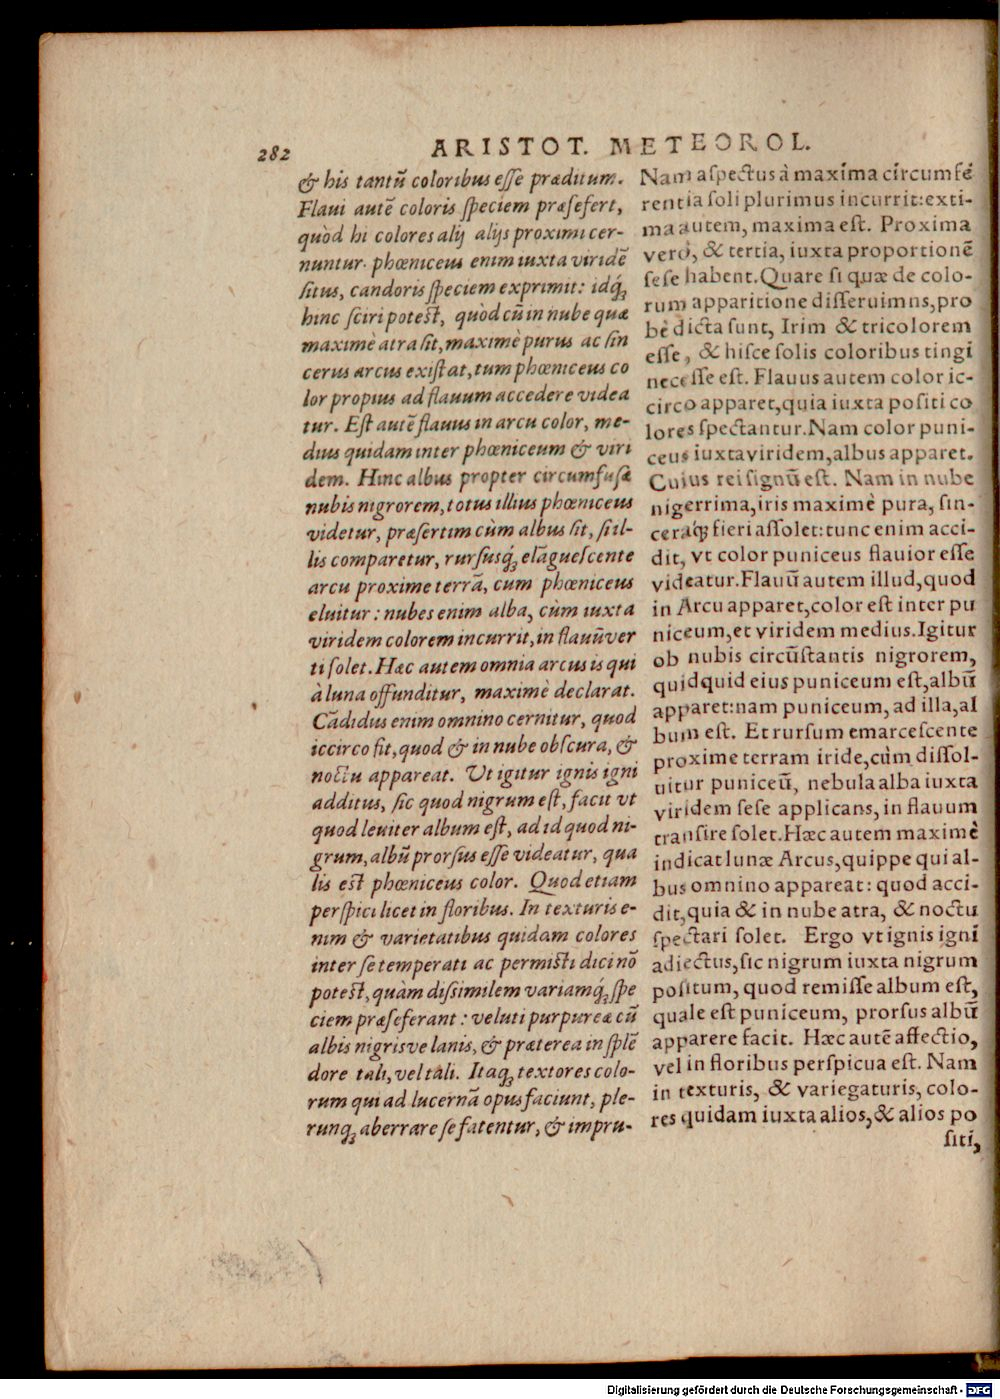 282
ARISTOT. METEOROL.
& his tantū coloribus esse præditum.
Flaui autē coloris speciem præsefert,
quòd hi colores alij alijs proximi cer-
nuntur. phœniceus enim iuxta viridē
situs, candoris speciem exprimit: idq́ꝫ
hinc sciri potest, quòd cū in nube quæ
maximè atra sit, maximè purus ac sin
cerus arcus existat, tum phœniceus co
lor propius ad flauum accedere videa
tur. Est autē flauus in arcu color, me-
dius quidam inter phœniceum & viri
dem. Hinc albus propter circumfusæ
nubis nigrorem, totus illius phœniceus
videtur, præsertim cùm albus sit, si il-
lis comparetur, rursusq́ꝫ elāguescente
arcu proxime terrā, cum phœniceus
eluitur: nubes enim alba, cùm iuxta
viridem colorem incurrit, in flauū ver
ti solet. Hæc autem omnia arcus is qui
à luna offunditur, maximè declarat.
Cādidus enim omnino cernitur, quod
iccirco fit, quod & in nube obscura, &
noctu appareat. Ut igitur ignis igni
additus, sic quod nigrum est, facit vt
quod leuiter album est, ad id quod ni-
grum, albū prorsus esse videatur, qua
lis est phœniceus color. Quod etiam
perspici licet in floribus. In texturis e-
nim & varietatibus quidam colores
inter se temperati ac permisti dici nō
potest, quàm dissimilem variamq́ꝫ spe
ciem præseferant: veluti purpureæ cū
albis nigrisve lanis, & præterea in splē
dore tali, vel tali. Itaqꝫ textores colo-
rum qui ad lucernā opus faciunt, ple-
runqꝫ aberrare se fatentur, & impru-
Nam aspectus à maxima circumfé
rentia soli plurimus incurrit: exti-
ma autem, maxima est. Proxima
verò, & tertia, iuxta proportionē
sese habent. Quare si quæ de colo-
rum apparitione disseruimns, pro
bè dicta sunt, Irim & tricolorem
esse, & hisce solis coloribus tingi
necesse est. Flauus autem color ic-
circo apparet, quia iuxta positi co
lores spectantur. Nam color puni-
ceus iuxta viridem, albus apparet.
Cuius rei signū est. Nam in nube
nigerrima, iris maximè pura, sin-
ceraq́ꝫ fieri assolet: tunc enim acci-
dit, vt color puniceus flauior esse
videatur. Flauū autem illud, quod
in Arcu apparet, color est inter pu
niceum, et viridem medius. Igitur
ob nubis circūstantis nigrorem,
quidquid eius puniceum est, albū
apparet: nam puniceum, ad illa, al
bum est. Et rursum emarcescente
proxime terram iride, cùm dissol-
uitur puniceū, nebula alba iuxta
viridem sese applicans, in flauum
transire solet. Hæc autem maximè
indicat lunæ Arcus, quippe qui al-
bus omnino appareat: quod acci-
dit, quia & in nube atra, & noctu
spectari solet. Ergo vt ignis igni
adiectus, sic nigrum iuxta nigrum
positum, quod remisse album est,
quale est puniceum, prorsus albū
apparere facit. Hæc autē affectio,
vel in floribus perspicua est. Nam
in texturis, & variegaturis, colo-
res quidam iuxta alios, & alios po
siti,
Digitalisierung gefördert durch die Deutsche Forschungsgemeinschaft - DFG